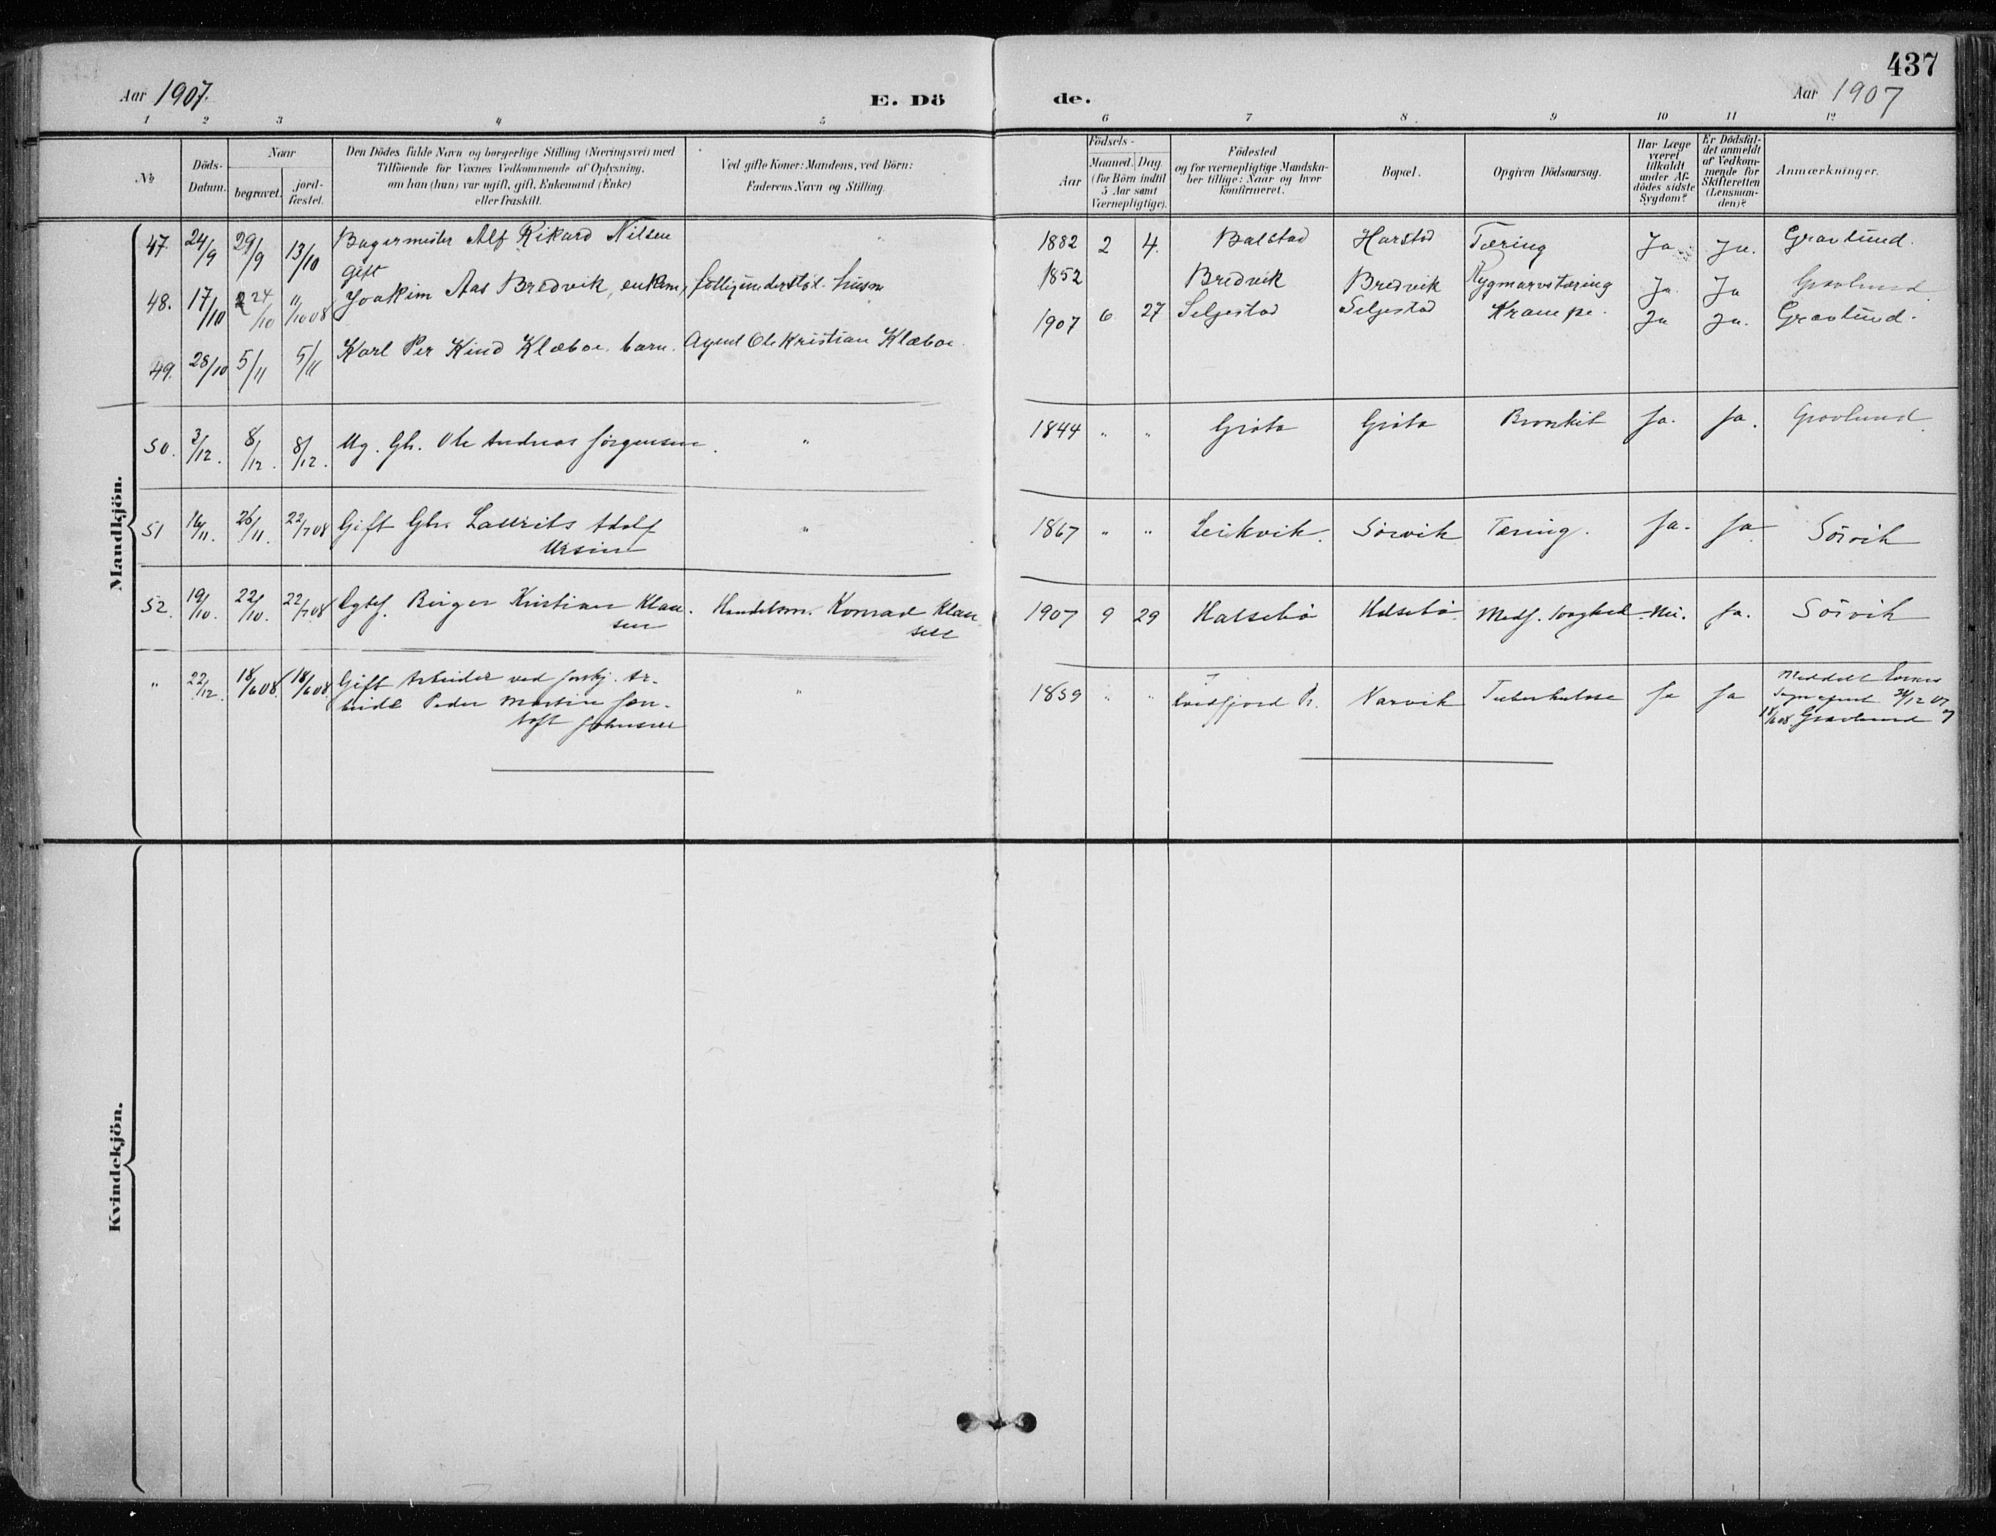 437
Aar 1907.
E. Dö
de.
Aar 1907
1 2 3 4 5
6 7 8. 9 10 11 12
No
Döds-
Datum.
Naar
begravet.
jord-
fæstet.
Den Dödes fulde Navn og borgerlige Stilling (Næringsvei) med
Tilföiende for Voxnes Vedkommende af Oplysning,
om han (hun) var ugift, gift, Enkemand (Enke)
eller fraskilt.
Ved gifte Koner: Mandens, ved Börn:
Faderens Navn og Stilling.
Födsels-
Aar
Maaned. Dag
(for Börn indtil
5 Aar samt
Værnepligtige).
Födested
og for værnepligtige Mandska-
ber tillige: Naar og hvor
konfirmeret.
Bopæl.
Opgiven Dödsaarsag.
Har Læge
været
tilkaldt
under Af-
dödes sidste
Sygdom?
Er Dödsfal-
det anmeldt
af Vedkom-
mende for
Skifteretten
(Lensman-
den)?
Anmærkninger.
Mandkjön.
47. 24/9 29/9 13/10 Bagermester Alf Rikard Nilsen " 1882 2 4. Balstad Harstad Tæring Ja Ja. Gravlund.
gift
48. 17/10 24/10 "/10 08 Joakim Aas Bredvik, enkem, husm 1852 Bredvik Bredvik Rygmarvstæring Ja. Ja Gravlund.
49. 28/10 5/11 5/11 Karl Per Kind Klæboe, barn. Agent Ole Kristian Klæboe. 1907 6 27 Seljestad Seljestad Krampe. Ja Ja. Gravlund.
50. 3/12. 8/12. 8/12. Ug. Gbr. Ole Andreas Jörgensen. " 1844 " " Gröta Gröta Bronkit Ja. Ja. Gravlund.
51 16/11. 26/11. 22/7 08 Gift Gbr. Laurits Adolf
Ursin
" 1867 " " Leikvik. Sörvik Tæring. Ja. Ja Sörvik
52. 19/10. 22/10. 22/7 08 Birger Kristian Klau-
sen
Handelsm. Konrad Klau-
sen
1907 9 29 Halsebö Halsebö. Medf. Svaghed. Nei. Ja. Sörvik
" 22/12. 18/6 08. 18/6 08. Gift Arbeider ved
Peder Martin
Johnsen
" 1859 " " Kvedfjord Pr. Narvik Tuberkulose Ja Ja Meddelt
31/12 07
18/6 08. Gravlund
Kvindekjön.